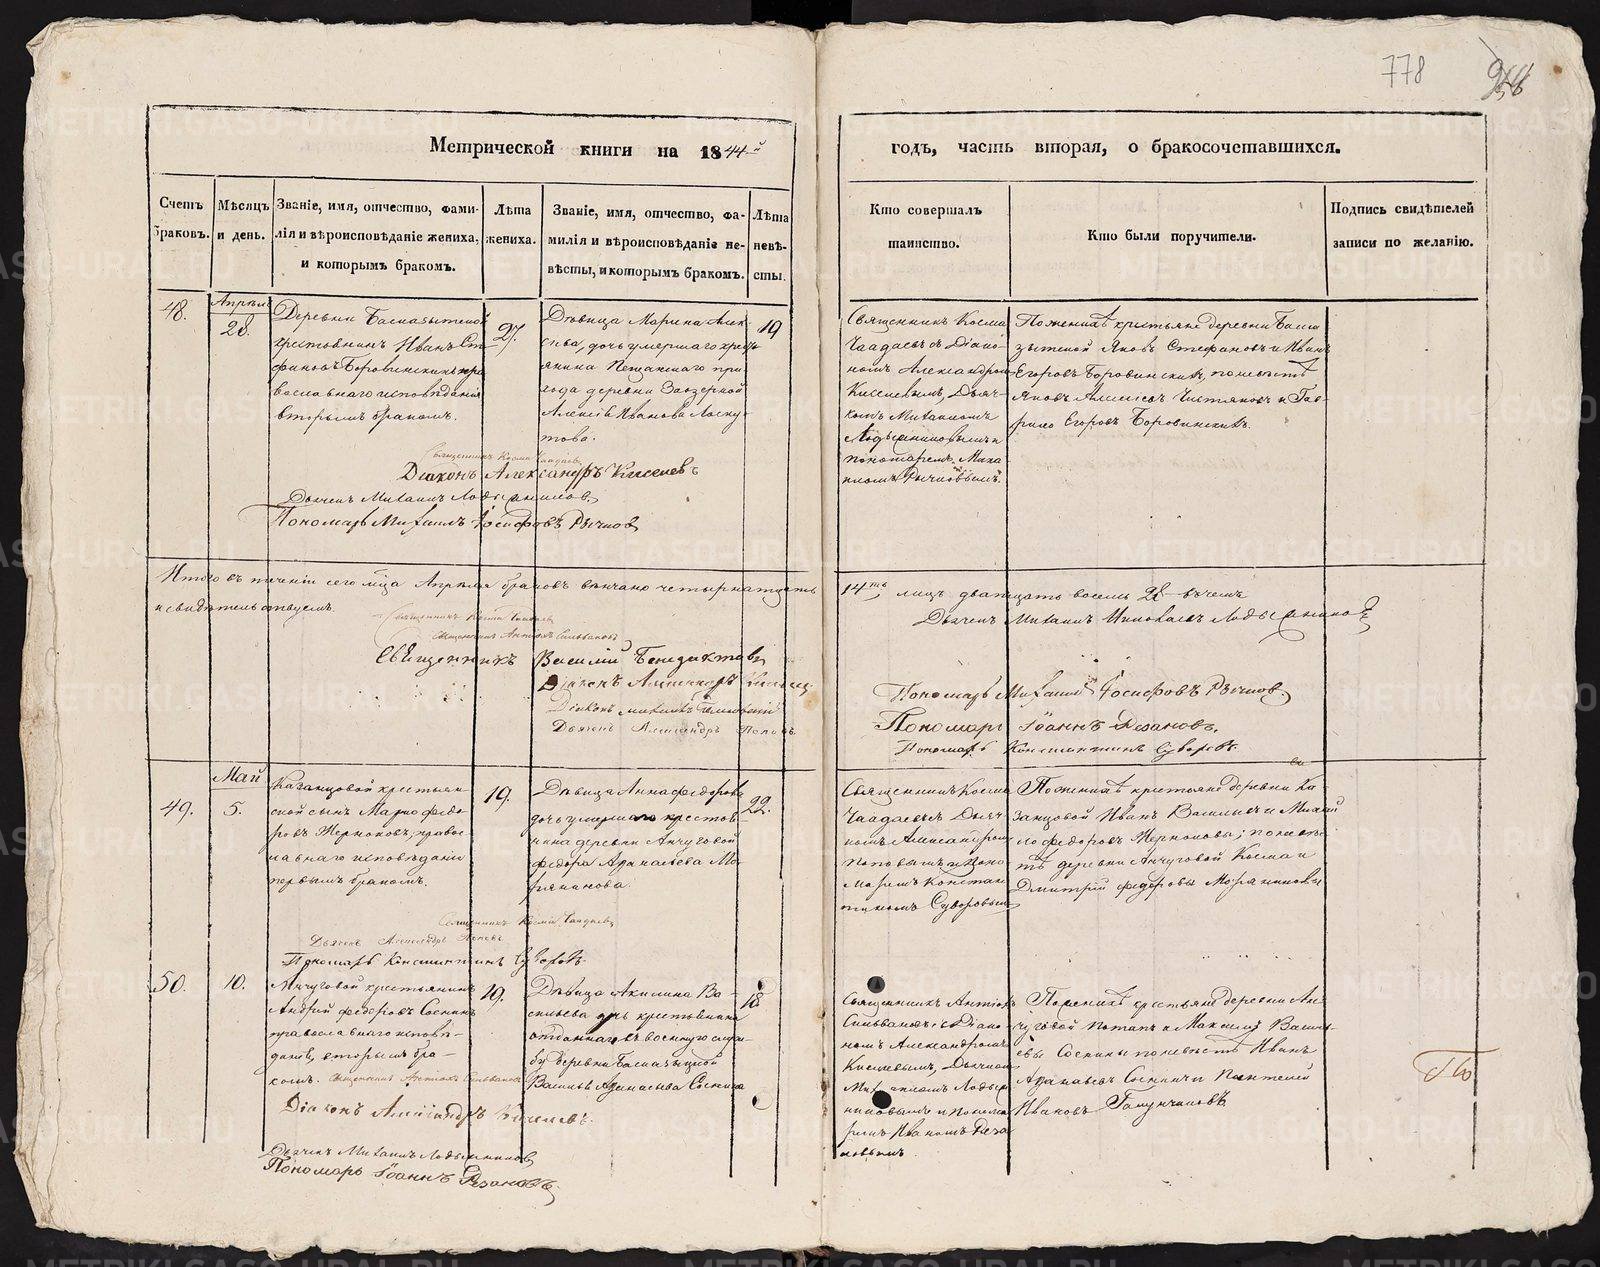 778
Метрической книги на 1844й
годъ, часть вторая, о бракосочетавшихся.
Счетъ браковъ.
Мѣсяцъ и день.
Званіе, имя, отчество, фами-
лія и вѣроисповѣданіе жениха,
и которымъ бракомъ.
Лѣта жениха.
Званіе, имя, отчество, фа-
милія и вѣроисповѣданіе не-
вѣсты, и которымъ бракомъ.
Лѣта невѣ-
сты.
Кто совершалъ
таинство.
Кто были поручители.
Подпись свидѣтелей
записи по желанію.
48.
Апрѣль
28.
Деревни
крестьянинъ Иванъ Сте-
фановъ Боровинскихъ пра
вославнаго исповѣданія
вторымъ бракомъ.
27.
Дѣвица Марина Алек-
сѣева, дочь умершаго крест
янина Пещанскаго при
хода деревни Заозерной
Алексѣя Иванова Лоску
това.
19
Священникъ Косма
Чаадаевъ съ Діако-
номъ Александромъ
Киселевымъ, Дьяч-
комъ Михаиломъ
Лодыжниковымъ и
пономаремъ Миха
иломъ Рычковымъ.
По женихѣ крестьяне деревни
Яковъ Стефановъ и Иванъ
Егоровъ Боровинскихъ, по невѣстѣ
Яковъ Алексѣевъ и Гав-
рило Егоровъ Боровинскихъ.
Священникъ Косма Чаадаевъ
Діаконъ Александръ Киселевъ
Дьячекъ Михаилъ Лодыжниковъ
Пономарь Михаилъ Іосифовъ Рычковъ
Итого въ теченіи сего мца Апрѣля браковъ вѣнчано четырнатцать
14ть лицъ дватцать восемь 28 въ чемъ
и свидѣтельствуемъ.
Священникъ Косма Чаадаевъ
Священникъ Антіохъ Сильвановъ
Священникъ Василій Бенедиктовъ
Діаконъ Александръ Киселевъ
Діаконъ Михаилъ
Дьячекъ Александръ Поповъ
Дьячекъ Михаилъ Николаевъ Лодыжниковъ
Пономарь Михаилъ Іосифовъ Рычковъ
Пономарь Іоаннъ Рѣзановъ
Пономарь Константинъ Суворовъ
49.
Май
5.
Казанцовой крестьян
ской сынъ Марко Федо
ровъ Жерноковъ, право
славнаго исповѣданія
первымъ бракомъ.
19.
Дѣвица Анна Федорова
дочь умершаго крестья-
нина деревни Анчуговой
Федора Афанасьева
22.
Священникъ Косма
Чаадаевъ съ Дьяч-
комъ Александромъ
Поповымъ и Поно-
маремъ Констан
тиномъ Суворовымъ
По женихѣ крестьяне деревни Ка-
занцовой Иванъ Васильевъ и Михай
ло Федоровъ Жерноковы; по невѣс
тѣ деревни Анчуговой Косма и
Дмитрій Федоровы
Священникъ Косма Чаадаевъ
Дьячекъ Александръ Поповъ
Пономарь Константинъ Суворовъ
50.
10.
Анчуговой крестьянинъ
Андрей Федоровъ Соснинъ
православнаго исповѣ-
данія, вторымъ бра-
комъ.
19.
Дѣвица Акилина Ва-
сильева дочь крестьянина
отданнаго въ военную служ
бу деревни
Василья Афанасьева Соснина
18
Священникъ Антіохъ
Сильвановъ съ Діако-
номъ Александромъ
Киселевымъ, Дьячкомъ
Михаиломъ Лодыж
никовымъ и понома
ремъ Иваномъ Рѣза
новымъ
По женихѣ крестьяне деревни Ан-
чуговой Потапъ и Максимъ Василь-
евы Соснины по невѣстѣ Иванъ
Афанасьевъ Соснинъ и Пантелей
Ивановъ
Священникъ Антіохъ Сильвановъ
Діаконъ Александръ Киселевъ
Дьячекъ Михаилъ Лодыжниковъ
Пономарь Іоаннъ Рѣзановъ
METRIKI.GASO-URAL.RU